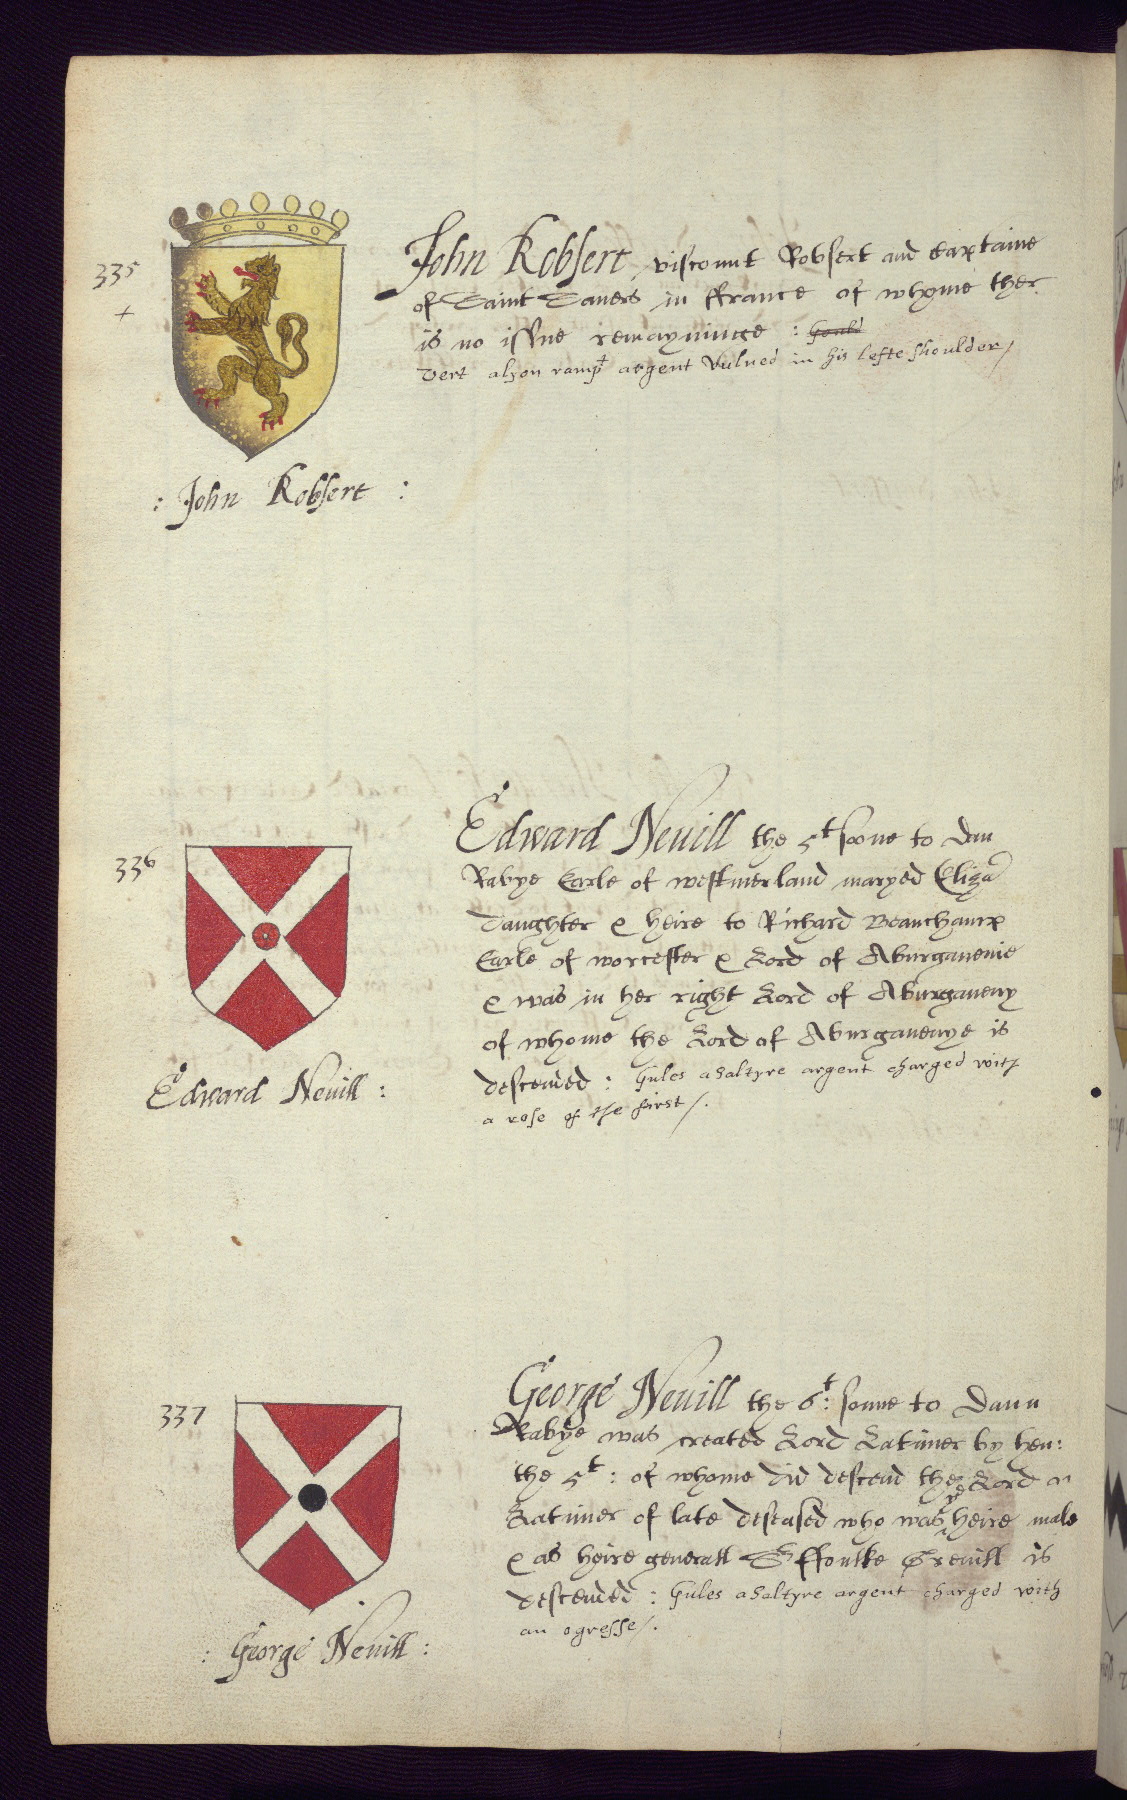 335
+
John Robsert viscount Robsert and Captaine
of Saint Savers in ffrance of whome ther
is no issue remayninge :
vert a lyon ramp^t argent vulned in his lefte shoulder /
: John Robsert :
336
Edward Nevill the 5^t sonne to Dan
Rabye Earle of westmerland maryed Eliza
Daughter & heire to Richard Beauchamp
Earle of worcester & Lord of Aburgavenie
& was in her right Lord of Aburgaveny
of whome the Lord of Aburgavenye is
descended : Gules a saltyre argent charged with
a rose of the first /.
Edward Nevill :
337
George Nevill the 6^t: sonne to Daun
Rabye was created Lord Latimer by hen:
the 5^t : of whome did descend the Lord
Latimer of late deceased who was heire male
& as heire generall S^r ffoulke Grevill is
descended : Gules a saltyre argent charged with
an ogresse /.
: George Nevill :